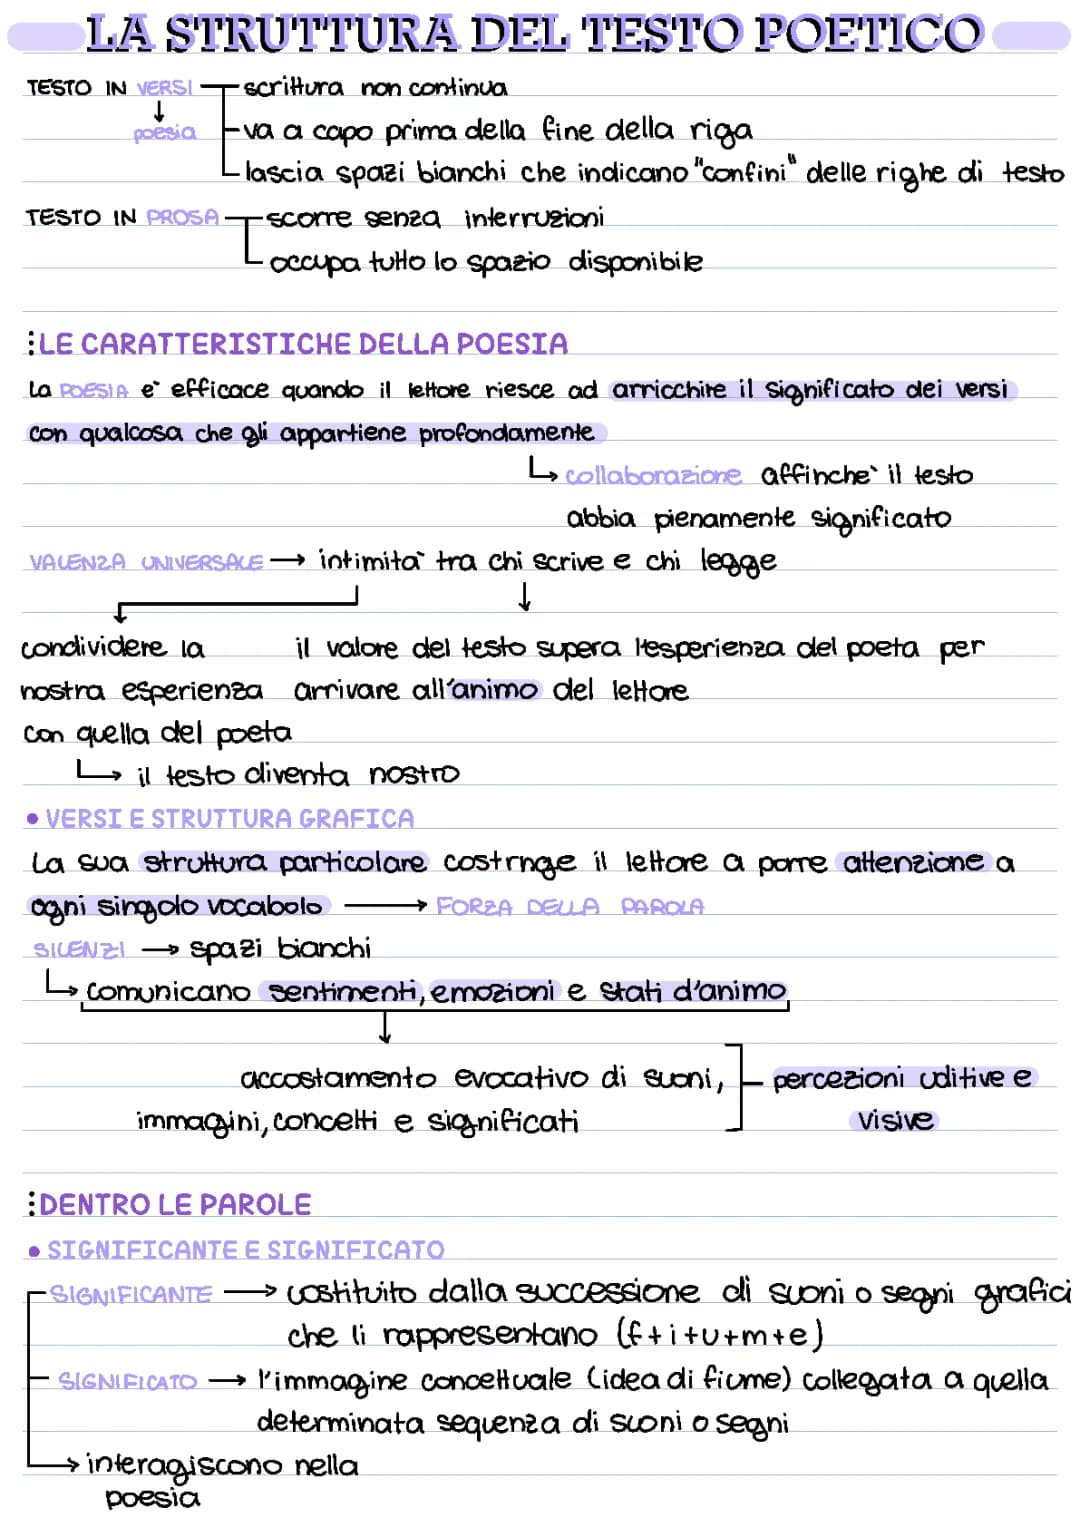 LA STRUTTURA DEL TESTO POETICO
TESTO IN VERSI scrittura non continua
↓
poesia va a capo prima della fine della riga
lascia spazi bianchi che indicano "confini" delle righe di testo
TESTO IN PROSA scorre senza interruzioni
occupa tutto lo spazio disponibile
⋮LE CARATTERISTICHE DELLA POESIA
La POESIA e` efficace quando il lettore riesce ad arricchire il significato dei versi
con qualcosa che gli appartiene profondamente
↳ collaborazione affinche` il testo
abbia pienamente significato
VALENZA UNIVERSALE → intimita` tra chi scrive e chi legge
↓
condividere la il valore del testo supera l'esperienza del poeta per
nostra esperienza arrivare all'animo del lettore
con quella del poeta
↳ il testo diventa nostro
• VERSI E STRUTTURA GRAFICA
La sua struttura particolare costringe il lettore a porre attenzione a
ogni singolo vocabolo → FORZA DELLA PAROLA
SILENZI → spazi bianchi
↳ comunicano sentimenti, emozioni e stati d'animo
↓
accostamento evocativo di suoni,
immagini, concetti e significati
percezioni uditive e
visive
⋮DENTRO LE PAROLE
• SIGNIFICANTE E SIGNIFICATO
SIGNIFICANTE → costituito dalla successione di suoni o segni grafici
che li rappresentano (f+i+u+m+e)
SIGNIFICATO → l'immagine concettuale (idea di fiume) collegata a quella
determinata sequenza di suoni o segni
→ interagiscono nella
poesia